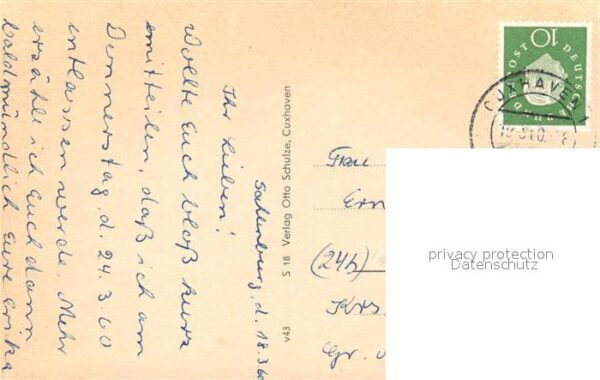 Sahlenburg, d. 18.3.60
Ihr Lieben!
Wollte Euch bloß kurz
mitteilen, daß ich am
Donnerstag, d. 24.3.60
entlassen werde. Mehr
erzähl ich Euch dann
bald mündlich Eure Erika
v43 S 18 Verlag Otto Schulze, Cuxhaven
DEUTSCHE BUNDESPOST
10
CUXHAVEN
Frau
Ern
(24b)
Krs.
Gr.
privacy protection
Datenschutz